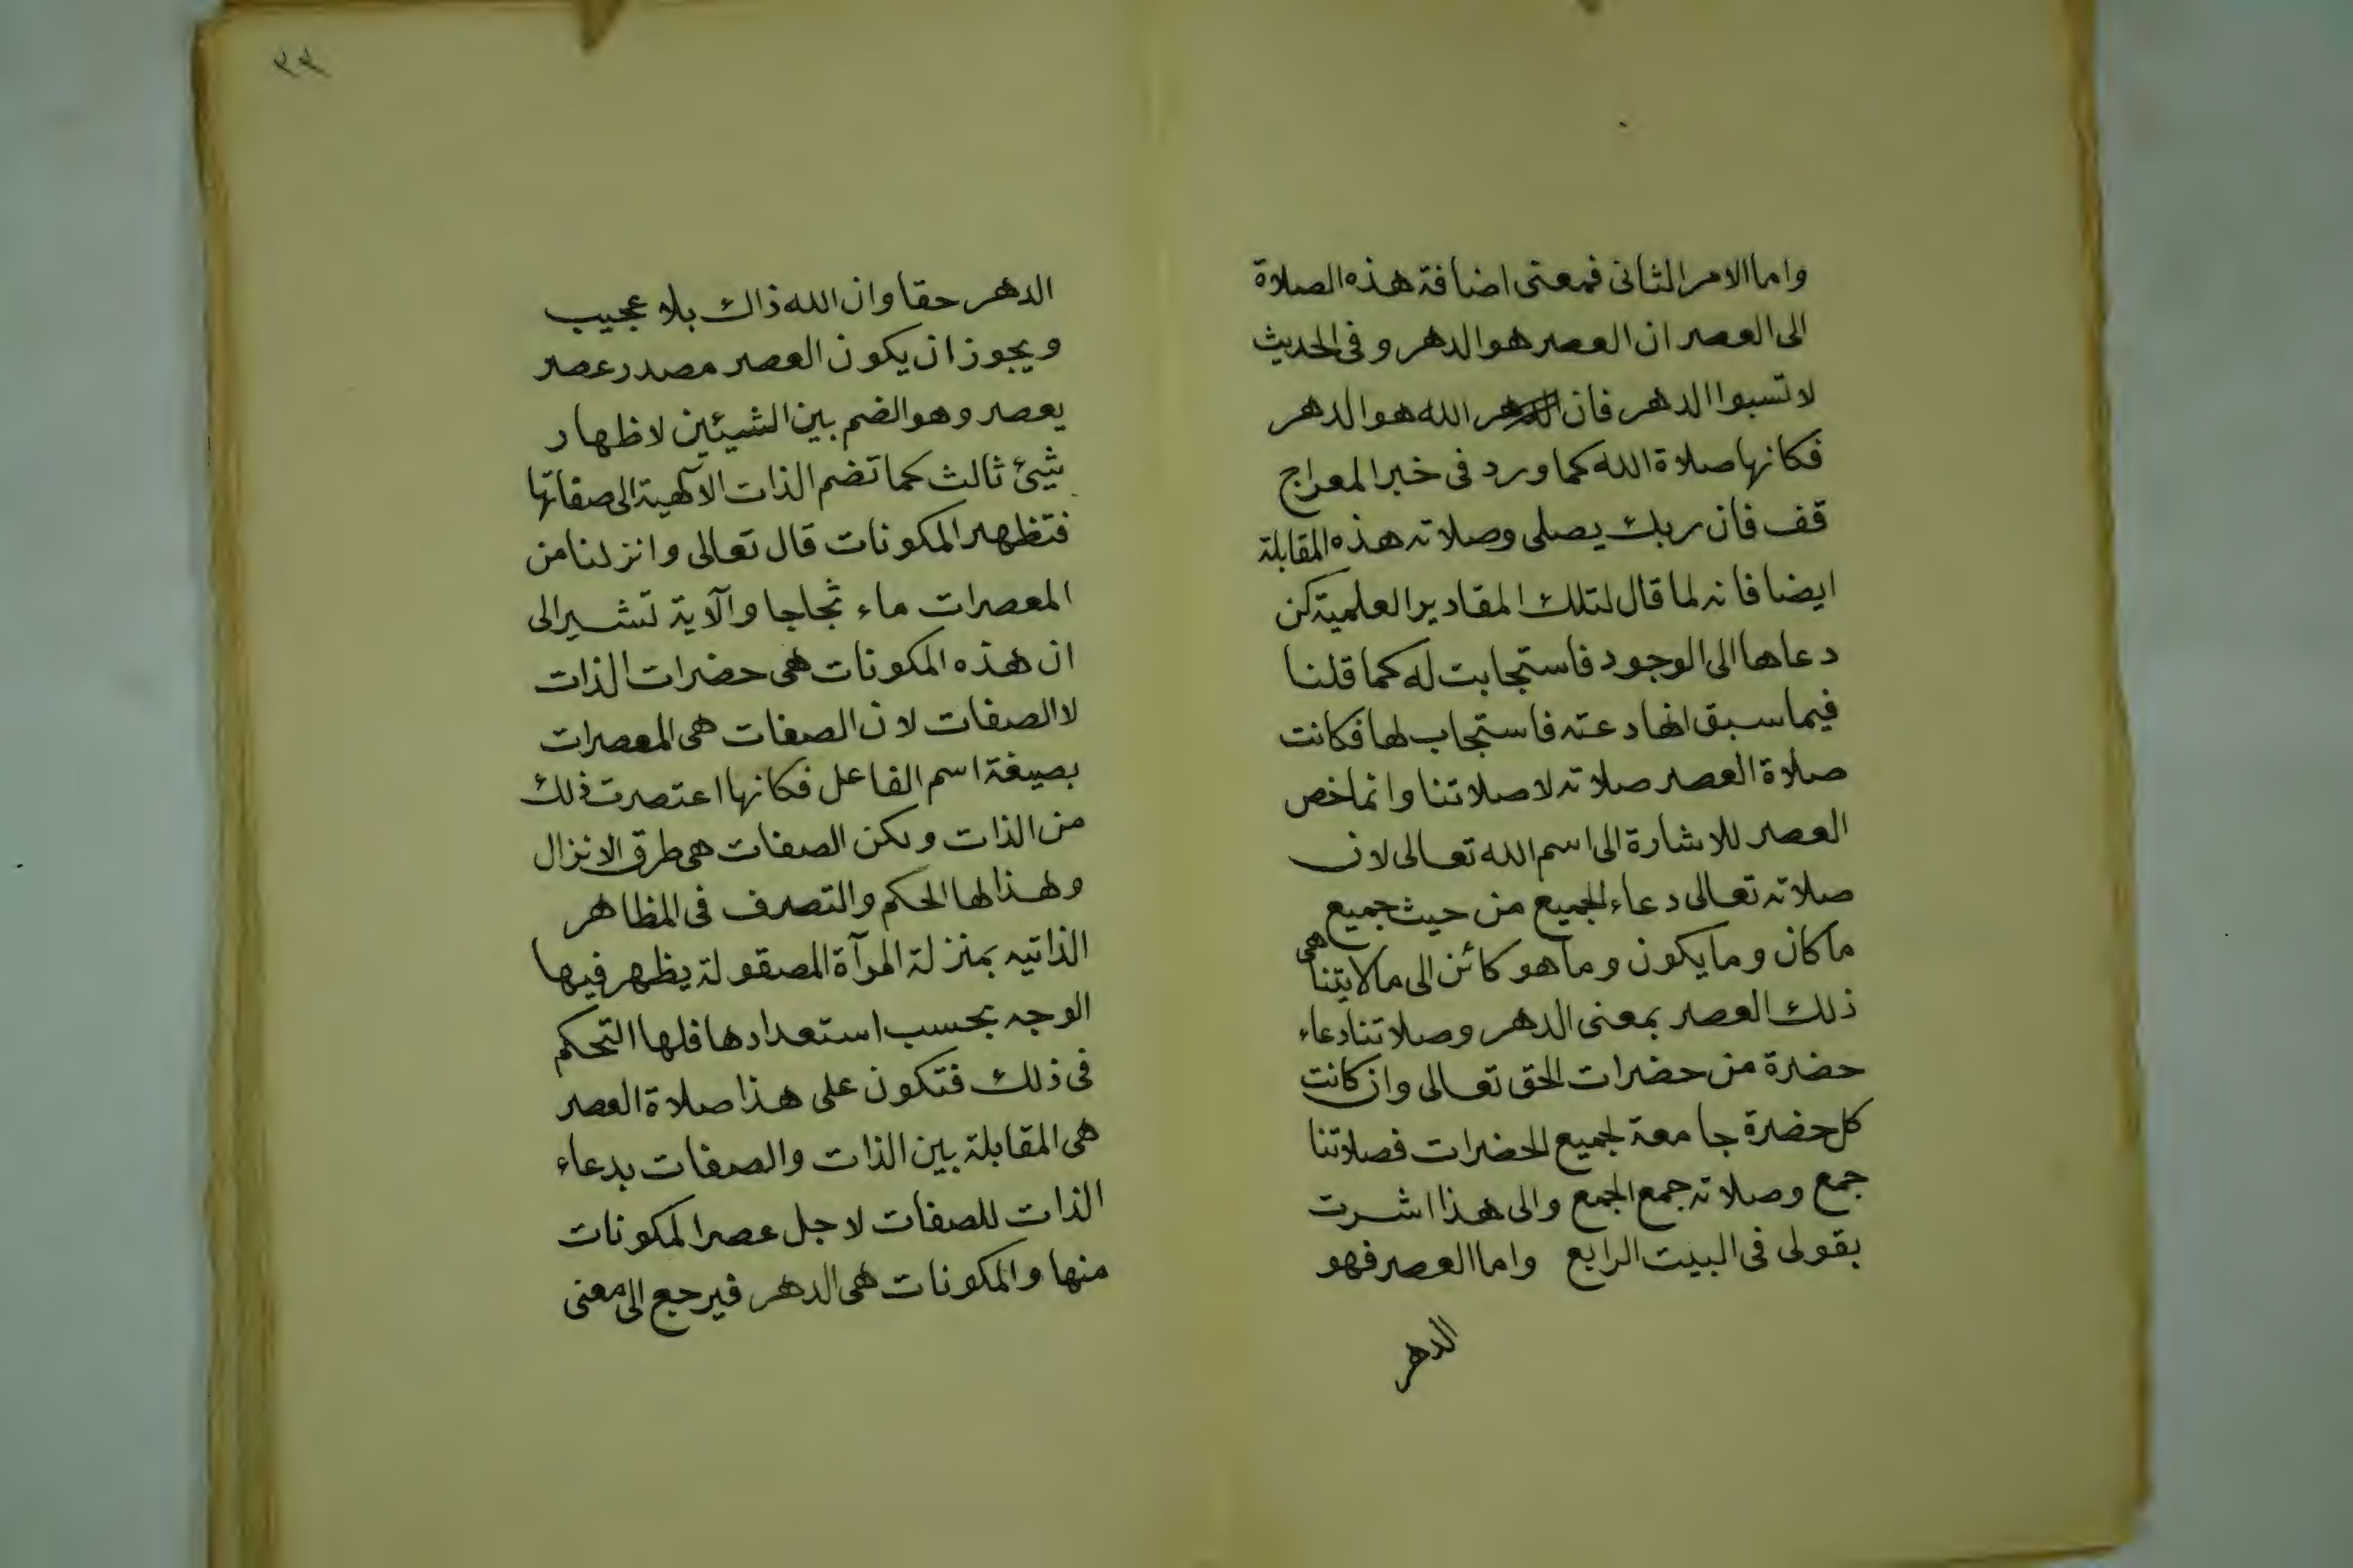 واما الامر الثانى فمعنى اضافة هذه الصلاة
الى العصر ان العصر هو الدهر وفى الحديث
لا تسبوا الدهر فان الدهر الله هو الدهر
فكانها صلاة الله كما ورد فى خبر المعراج
قف فان ربك يصلى وصلاته هذه المقابلة
ايضا فانه لما قال لتلك المقادير العلمية كن
دعاها الى الوجود فاستجابت له كما قلنا
فيما سبق انها دعته فاستجاب لها فكانت
صلاة العصر صلاته لا صلاتنا وانما خص
العصر للاشارة الى اسم الله تعالى لان
صلاته تعالى دعاء الجميع من حيث جميع
ما كان وما يكون وما هو كائن الى ما لا يتناهى
ذلك العصر بمعنى الدهر وصلاتنا دعاء
حضرة من حضرات الحق تعالى وان كانت
كل حضرة جامعة لجميع الحضرات فصلاتنا
جمع وصلاته جمع الجمع والى هذا اشرت
بقولى فى البيت الرابع واما العصر فهو
الدهر
٣٣
الدهر حقا وان الله ذاك بلا عجيب
ويجوز ان يكون العصر مصدر عصر
يعصر وهو الضم بين الشيئين لاظهار
شيئ ثالث كما تضم الذات الآلهية الى صفاتها
فتظهر المكونات قال تعالى وانزلنا من
المعصرات ماء ثجاجا والآية تشير الى
ان هذه المكونات هى حضرات الذات
لا الصفات لان الصفات هى المعصرات
بصيغة اسم الفاعل فكانها اعتصرت ذلك
من الذات ولكن الصفات هى طرق الانزال
ولهذا لها الحكم والتصرف فى المظاهر
الذاتيه بمنزلة المرآة المصقولة يظهر فيها
الوجه بحسب استعدادها فلها التحكم
فى ذلك فتكون على هذا صلاة العصر
هى المقابلة بين الذات والصفات بدعاء
الذات للصفات لاجل عصر المكونات
منها والمكونات هى الدهر فيرجع الى معنى